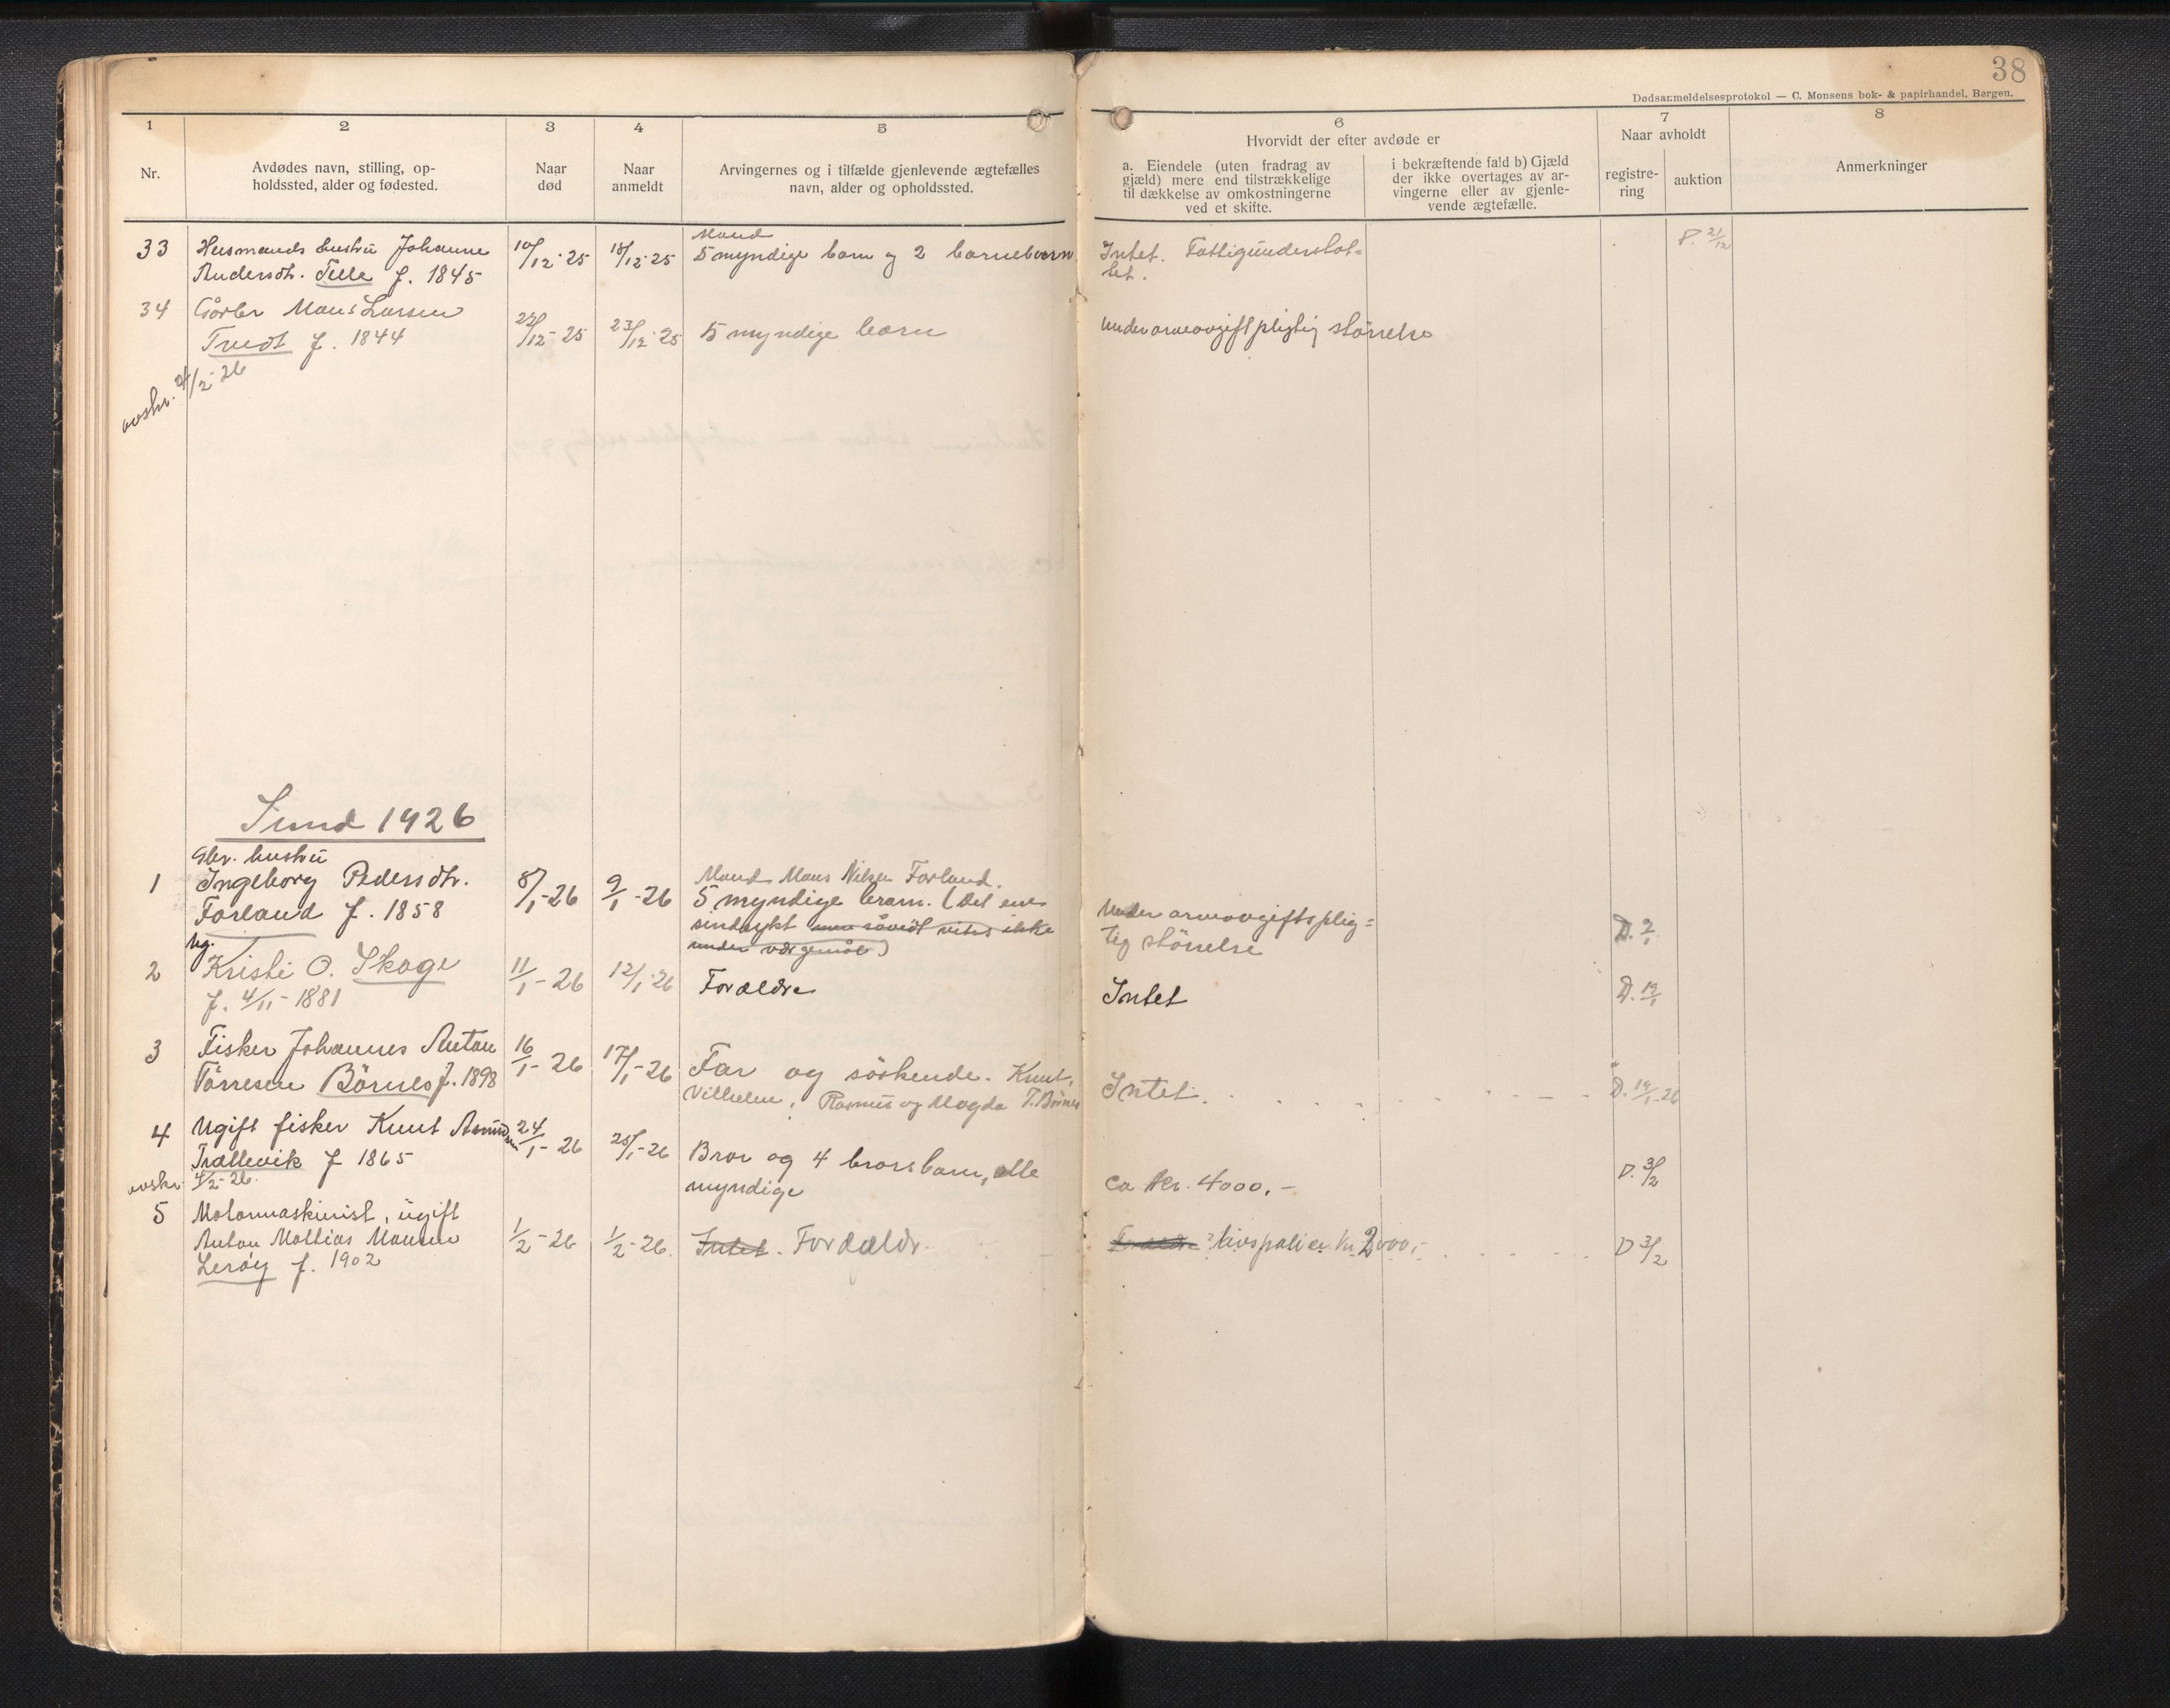 38
Dødsanmeldelsesprotokol — C. Monsens bok- & papirhandel, Bergen.
1
2
3
4
5
6
7
8
Nr.
Avdødes navn, stilling, op-
holdssted, alder og fødested.
Naar
død
Naar
anmeldt
Arvingernes og i tilfælde gjenlevende ægtefælles
navn, alder og opholdssted.
Hvorvidt der efter avdøde er
a. Eiendele (uten fradrag av
gjæld) mere end tilstrækkelige
til dækkelse av omkostningerne
ved et skifte.
i bekræftende fald b) Gjæld
der ikke overtages av ar-
vingerne eller av gjenle-
vende ægtefælle.
Naar avholdt
registre-
ring
auktion
Anmerkninger
33
Husmands hustru Johanne
Andersdt. Telle f. 1845
10/12-25
18/12-25
Mand
5 myndige barn og 2 barnebarn
Intet. Fattigunderstøt=
tet.
P. 21/12
34
Gårbr Mons Larsen
Tveit f. 1844
22/12-25
23/12-25
5 myndige barn
Under arveavgiftpligtig størrelse
avskr. 2/2-26
Sund 1926
1
Gbr. hustru
Ingeborg Pedersdtr.
Forland f. 1858
8/1-26
9/1-26
Mand Mons Nilsen Forland.
5 myndige barn. (Det ene
sindsykt men såvidt vites ikke
under værgemål)
Under arveavgiftsplig=
tig størrelse
D.
2
Ug.
Kristi O. Skoge
f. 4/11-1881
11/1-26
12/1-26
Forældre
Intet
D. 13/1
3
Fisker Johannes Anton
Tørresen Børnes f. 1898
16/1-26
17/1-26
Far og søskende. Knut,
Vilhelm, Rasmus og Magda T. Børnes
Intet
D. 19/1-26
4
Ugift fisker Knut
Trællevik f 1865
avskr. 4/2-26
24/1-26
25/1-26
Bror og 4 brorsbarn, alle
myndige
ca kr. 4000,-
D. 3/2
5
Motormaskinist, ugift
Anton Mathias Monsen
Lerøy f. 1902
1/2-26
1/2-26.
Intet. Forældr.
Forældre livspolice kr. 2000,-
D 3/2